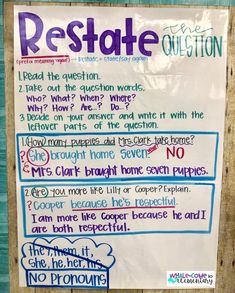 Restate the QUESTION
(prefix meaning again) → Restate = state/say again
1. Read the question.
2. Take out the question words.
Who? What? When? Where?
Why? How? Are? Do?
3. Decide on your answer and write it with the
leftover parts of the question.
1. How many puppies did Mrs. Clark take home?
? She brought home seven. NO
Mrs. Clark brought home seven puppies.
2. Are you more like Lilly or Cooper? Explain.
? Cooper because he's respectful.
I am more like Cooper because he and I
are both respectful.
they, them, it,
she, he, her, his
NO Pronouns
elementary